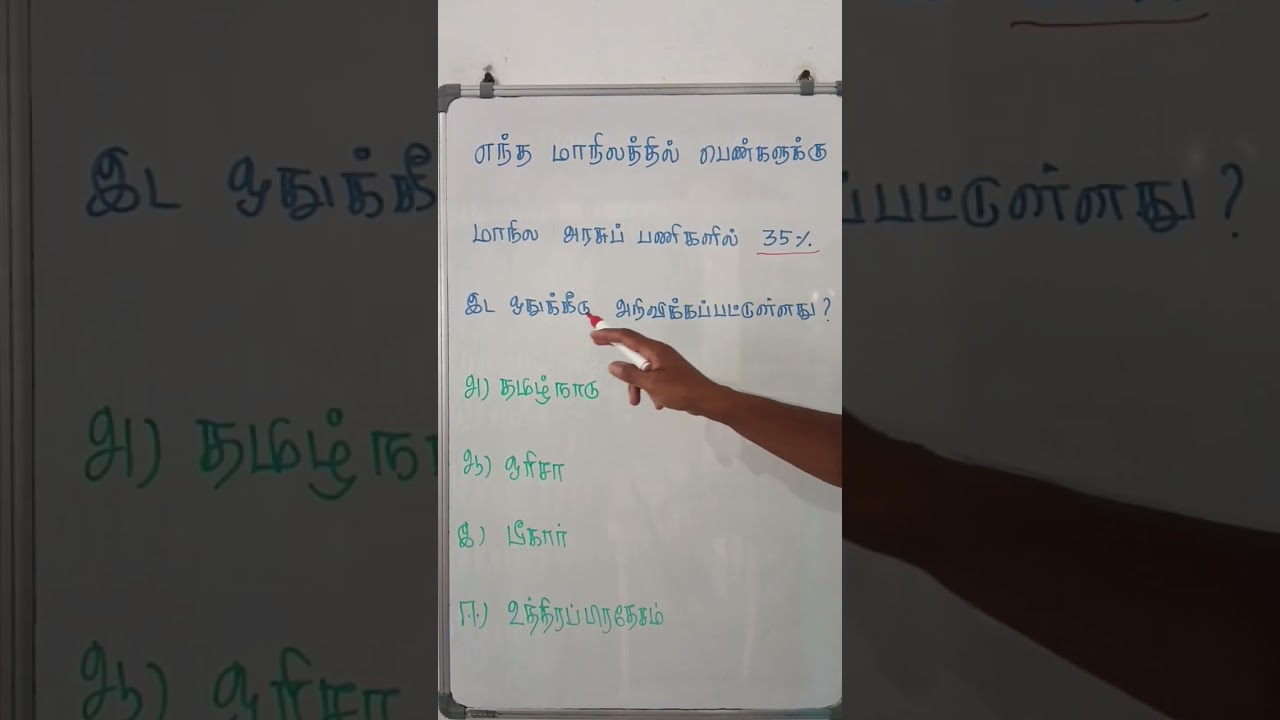 எந்த மாநிலத்தில் பெண்களுக்கு
மாநில அரசுப் பணிகளில் 35%
இட ஒதுக்கீடு அறிவிக்கப்பட்டுள்ளது?
அ) தமிழ்நாடு
ஆ) ஒரிசா
இ) பீகார்
ஈ) உத்திரப்பிரதேசம்